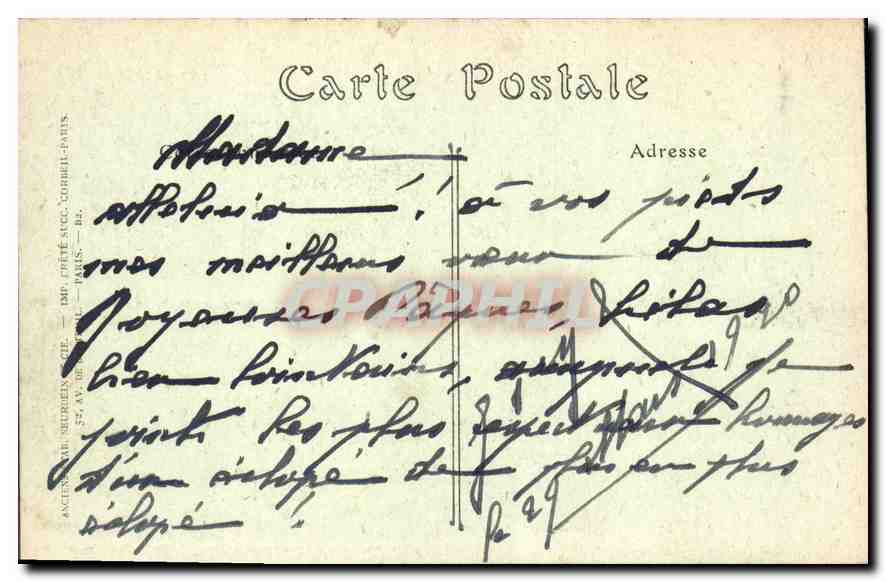 Carte Postale
Adresse
Madame
alleluia ! à vos pieds
mes meilleurs vœux de
Joyeuses Pâques, hélas
bien lointains, auxquels je
joint les plus respectueux hommages
d'un éclopé de plus en plus
éclopé !
le 29 mars 1920
ANCIENS ETAB. NEURDEIN ET CIE. — IMP. CRÉTÉ SUCC. CORBEIL-PARIS.
52, AV. DE — PARIS. — B2.
CPAPHIL